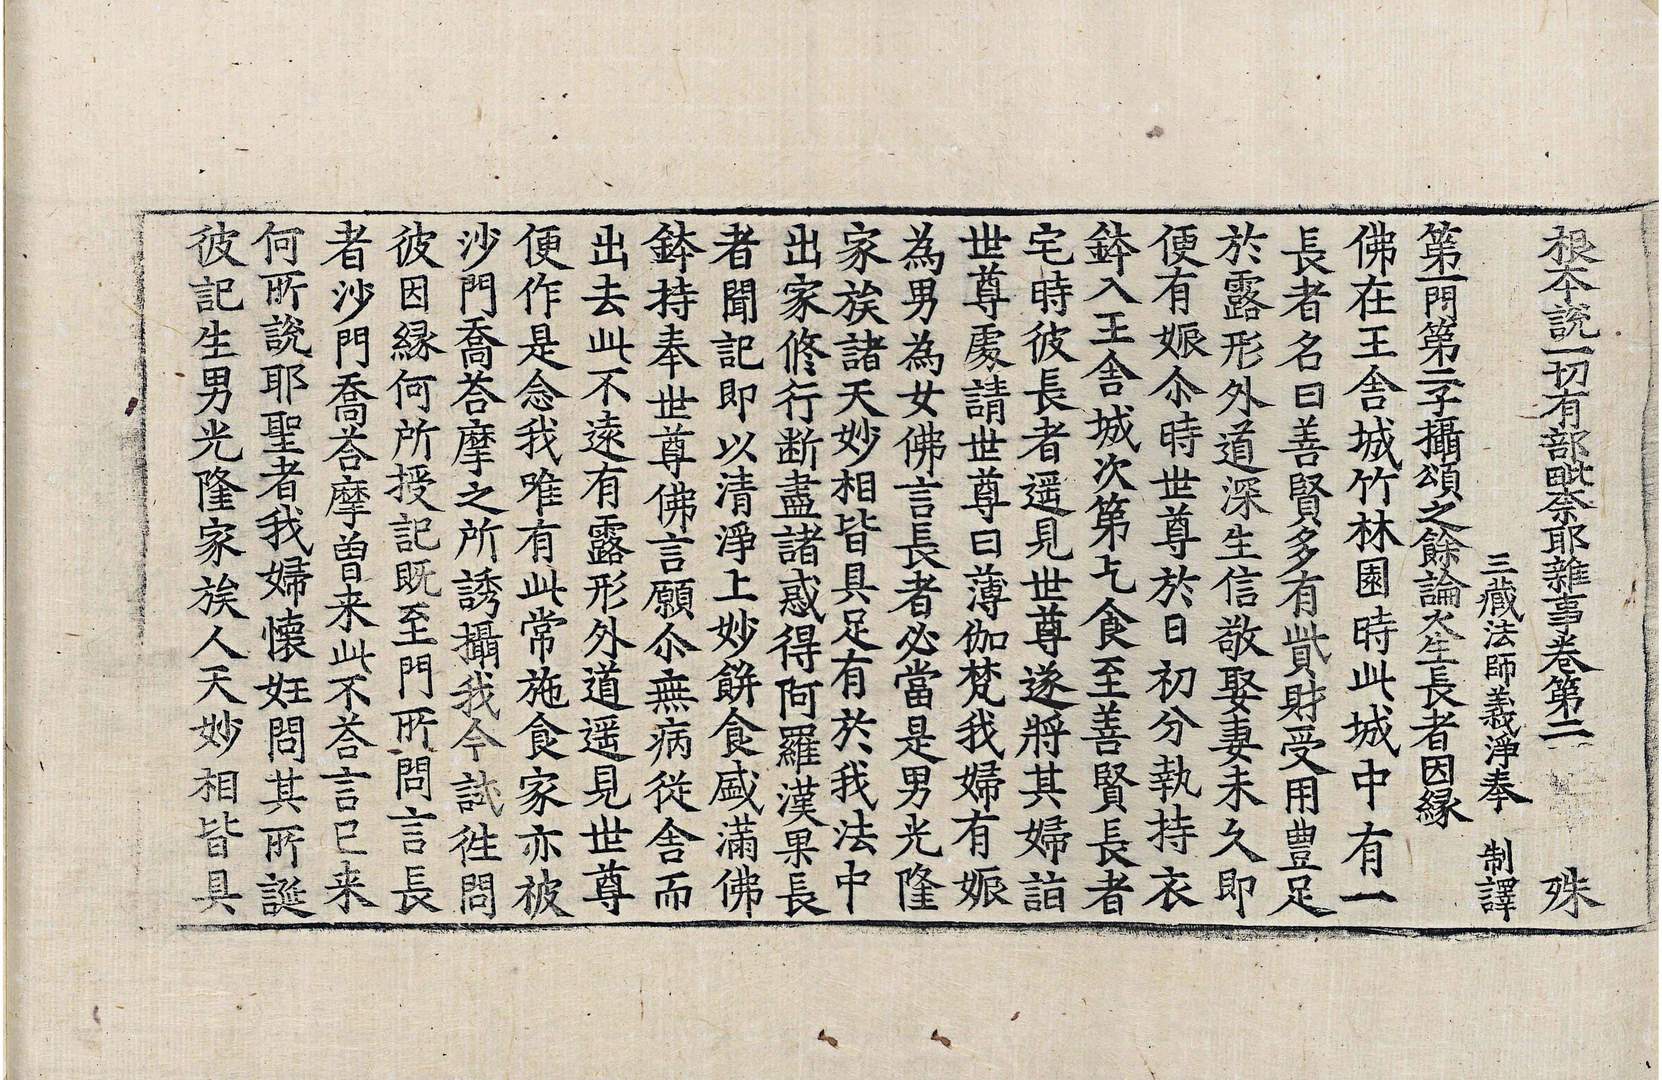 根本說一切有部毗奈耶雜事卷第二 殊
三藏法師義淨奉 制譯
第一門第二子攝頌之餘論火生長者因緣
佛在王舍城竹林園時此城中有一
長者名曰善賢多有貲財受用豊足
於露形外道深生信敬娶妻未久即
便有娠尒時世尊於日初分執持衣
鉢入王舍城次第乞食至善賢長者
宅時彼長者遥見世尊遂將其婦詣
世尊處請世尊曰薄伽梵我婦有娠
為男為女佛言長者必當是男光隆
家族諸天妙相皆具足有於我法中
出家修行断盡諸惑得阿羅漢果長
者聞記即以清淨上妙餅食盛滿佛
鉢持奉世尊佛言願尒無病從舍而
出去此不遠有露形外道遥見世尊
便作是念我唯有此常施食家亦被
沙門喬荅摩之所誘攝我今試徃問
彼因緣何所授記既至門所問言長
者沙門喬荅摩曽来此不荅言已来
何所說耶聖者我婦懷妊問其所誕
彼記生男光隆家族人天妙相皆具